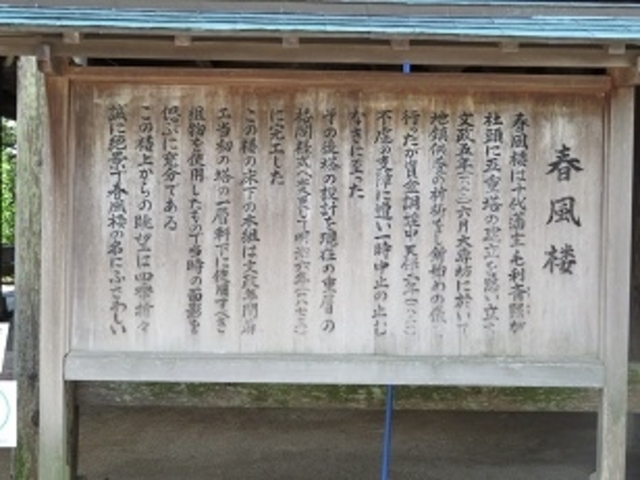 春風楼
春風楼は十代藩主毛利斉熙が
社頭に五重塔の建立を思い立ち
文政五年(一八二二)六月大専坊に於いて
地鎮の祈祷をし釿始めの儀
行ったが資金調達中天保二年(一八三一)
不慮の支障に遭い一時中止の止む
なきに至った
その後塔の設計を現在の重層の
楼閣様式へ変更して明治六年(一八七三)
に完工した
この楼の床下の木組は文政年間着
工当初の塔の一層軒下に使用すべき
組物を使用したもので当時の面影を
偲ぶに充分である
この楼上からの眺望は四季折々
誠に絶景で春風楼の名にふさわしい